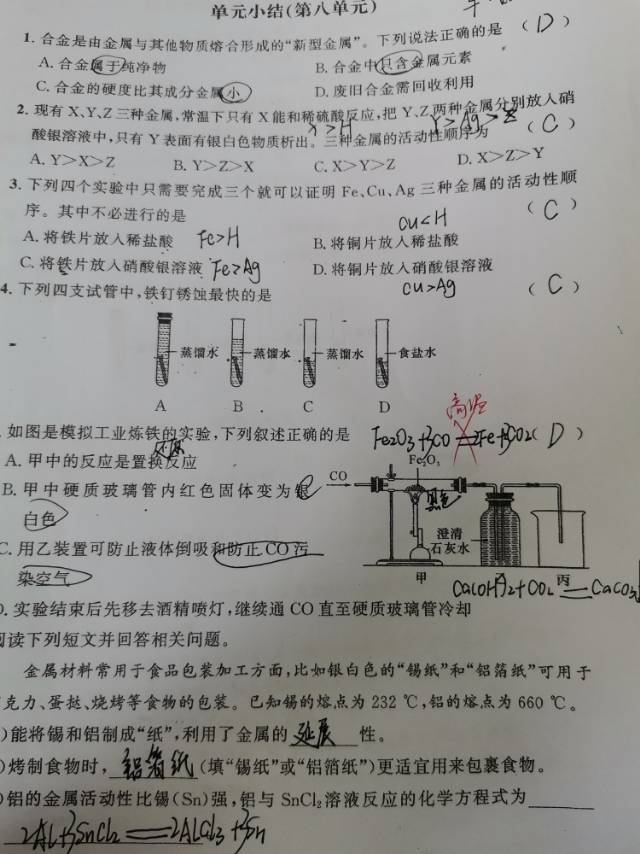 单元小结(第八单元)
1. 合金是由金属与其他物质熔合形成的“新型金属”。下列说法正确的是 ( D )
A. 合金属于纯净物 B. 合金中只含金属元素
C. 合金的硬度比其成分金属小 D. 废旧合金需回收利用
2. 现有X、Y、Z三种金属,常温下只有X能和稀硫酸反应,把Y、Z两种金属分别放入硝
X>H Y>Ag>Z
酸银溶液中,只有Y表面有银白色物质析出。三种金属的活动性顺序为 ( C )
A. Y>X>Z B. Y>Z>X C. X>Y>Z D. X>Z>Y
3. 下列四个实验中只需要完成三个就可以证明Fe、Cu、Ag三种金属的活动性顺
序。其中不必进行的是 ( C )
Cu<H
A. 将铁片放入稀盐酸 Fe>H B. 将铜片放入稀盐酸
C. 将铁片放入硝酸银溶液 Fe>Ag D. 将铜片放入硝酸银溶液
Cu>Ag
4. 下列四支试管中,铁钉锈蚀最快的是 ( C )
蒸馏水 蒸馏水 蒸馏水 食盐水
A B C D
高温
如图是模拟工业炼铁的实验,下列叙述正确的是 Fe2O3+3CO=2Fe+3CO2 ( D )
还原
A. 甲中的反应是置换反应
Fe₂O₃
B. 甲中硬质玻璃管内红色固体变为银
CO
黑色
白色
澄清
石灰水
C. 用乙装置可防止液体倒吸和防止CO污
染空气
甲 乙 丙
Ca(OH)2+CO2=CaCO3
D. 实验结束后先移去酒精喷灯,继续通CO直至硬质玻璃管冷却
阅读下列短文并回答相关问题。
金属材料常用于食品包装加工方面,比如银白色的“锡纸”和“铝箔纸”可用于
克力、蛋挞、烧烤等食物的包装。已知锡的熔点为232 ℃,铝的熔点为660 ℃。
)能将锡和铝制成“纸”,利用了金属的 延展 性。
)烤制食物时, 铝箔纸 (填“锡纸”或“铝箔纸”)更适宜用来包裹食物。
)铝的金属活动性比锡(Sn)强,铝与SnCl₂溶液反应的化学方程式为
2Al+3SnCl2=2AlCl3+3Sn